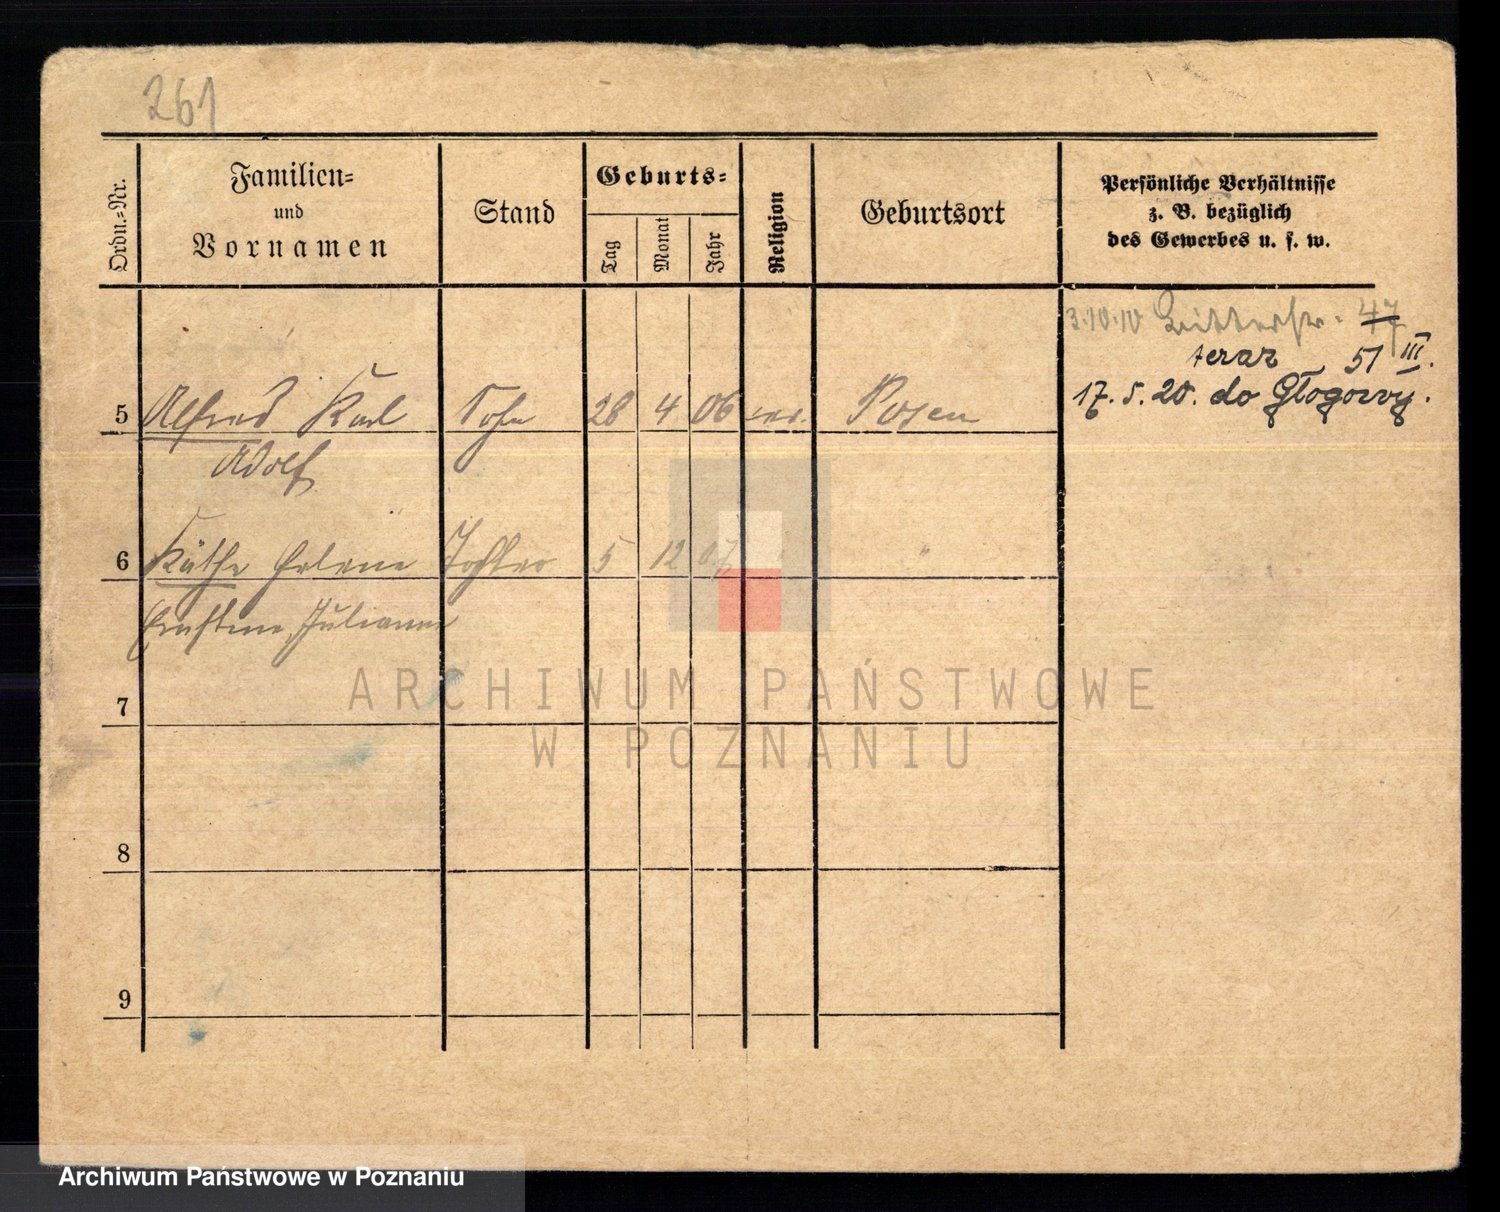 261
Ordn.-Nr.
Familien-
und
Vornamen
Stand
Geburts-
Tag
Monat
Jahr
Religion
Geburtsort
Persönliche Verhältnisse
z. B. bezüglich
des Gewerbes u. s. w.
3.10.10 Ritterstr. 47
teraz 51 III.
17. 5. 20. do Głogowy.
5 Alfred Karl Sohn 28 4 06 ev. Posen
Adolf
6 Käthe Helene Tochter 5 12 07 "
Ernstine Julianne
7
8
9
ARCHIWUM PAŃSTWOWE
W POZNANIU
Archiwum Państwowe w Poznaniu